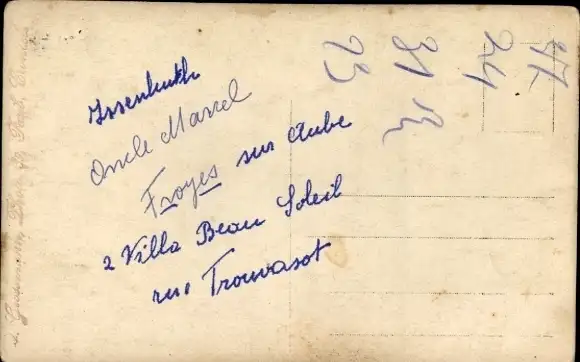 Issenhuth
Oncle Marcel
Froyes sur Aube
2 Villa Beau Soleil
rue Trouvasot
23
31
24
47